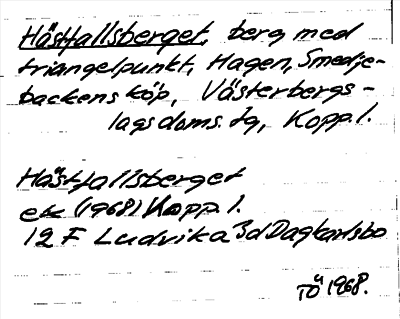 Hästfallsberget, berg med
triangelpunkt, Hagen, Smedje-
backens köp, Västerbergs-
lags doms. Jg, Kopp. l.
Hästfallsberget
ek (1968) Kopp. l.
12 F Ludvika 3d Dagkarlsbo
TÖ 1968.